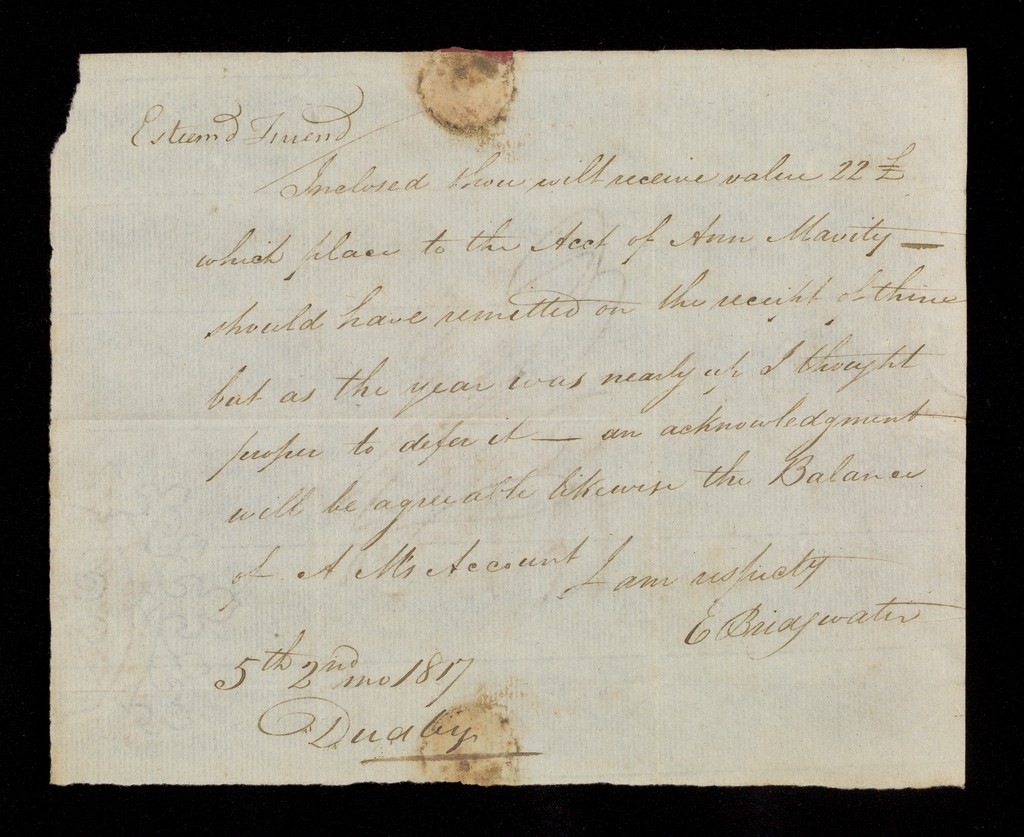 Esteemd Friend
Inclosed thou wilt receive value 22 £
which place to the Acct of Ann Mavity —
should have remitted on the receipt of thine
but as the year was nearly up I thought
proper to defer it — an acknowledgment
will be agreeable likewise the Balance
of A Ms Account
I am respecty
E Bridgwater
5th 2nd mo 1817
Dudley